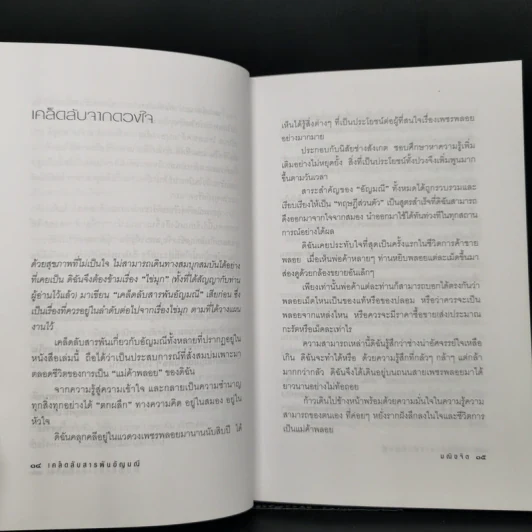 เคล็ดลับจากดวงใจ
ด้วยสุขภาพที่ไม่เป็นใจ ไม่สามารถเดินทางสมบุกสมบันได้อย่าง
ที่เคยเป็น ดิฉันจึงต้องข้ามเรื่อง "ไข่มุก" (ทั้งที่ได้สัญญากับท่าน
ผู้อ่านไว้แล้ว) มาเขียน "เคล็ดลับสารพันอัญมณี" เสียก่อน ซึ่ง
เป็นเรื่องที่ควรอยู่ในลำดับต่อไปจากเรื่องไข่มุก ตามที่ได้วางแผน
งานไว้
เคล็ดลับสารพันเกี่ยวกับอัญมณีทั้งหลายที่ปรากฏอยู่ใน
หนังสือเล่มนี้ ถือได้ว่าเป็นประสบการณ์ที่สั่งสมบ่มเพาะมา
ตลอดชีวิตของการเป็น "แม่ค้าพลอย" ของดิฉัน
จากความรู้สู่ความเข้าใจ และกลายเป็นความชำนาญ
ทุกสิ่งทุกอย่างได้ "ตกผลึก" ทางความคิด อยู่ในสมอง อยู่ใน
หัวใจ
ดิฉันคลุกคลีอยู่ในแวดวงเพชรพลอยมานานนับสิบปี ได้
๑๔ เคล็ดลับสารพันอัญมณี
เห็นได้รู้สิ่งต่างๆ ที่เป็นประโยชน์ต่อผู้ที่สนใจเรื่องเพชรพลอย
อย่างมากมาย
ประกอบกับนิสัยช่างสังเกต ชอบศึกษาหาความรู้เพิ่ม
เติมอย่างไม่หยุดยั้ง สิ่งที่เป็นประโยชน์ทั้งปวงจึงเพิ่มพูนมาก
ขึ้นตามวันเวลา
สาระสำคัญของ "อัญมณี" ทั้งหมดได้ถูกรวบรวมและ
เรียบเรียงให้เป็น "ทฤษฎีส่วนตัว" เป็นสูตรสำเร็จที่ดิฉันสามารถ
ดึงออกมาจากใจจากสมอง นำออกมาใช้ได้ทันท่วงทีในทุกสถาน
การณ์อย่างได้ผล
ดิฉันเคยประทับใจที่สุดเป็นครั้งแรกในชีวิตการค้าขาย
พลอย เมื่อเห็นพ่อค้าหลายๆ ท่านหยิบพลอยแต่ละเม็ดขึ้นมา
ส่องดูด้วยกล้องขยายอันเล็กๆ
เพียงเท่านั้นพ่อค้าแต่ละท่านก็สามารถบอกได้ตรงกันว่า
พลอยเม็ดไหนเป็นของแท้หรือของปลอม หรือว่าควรจะเป็น
พลอยจากแหล่งไหน หรือควรจะมีราคาซื้อขายส่งประมาณ
กะรัตหรือเม็ดละเท่าไร
ความสามารถเหล่านี้ดิฉันรู้สึกว่าช่างน่าอัศจรรย์ใจเหลือ
เกิน ดิฉันจะทำได้หรือ ด้วยความรู้สึกที่กล้าๆ กลัวๆ แต่กล้า
มากกว่ากลัว ดิฉันจึงได้เดินอยู่บนถนนสายเพชรพลอยมาได้
ยาวนานอย่างไม่ท้อถอย
ก้าวเดินไปข้างหน้าพร้อมด้วยความมั่นใจในความรู้ความ
สามารถของตนเอง ที่ค่อยๆ หยั่งรากฝังลึกลงในใจและชีวิตการ
เป็นแม่ค้าพลอย
๑๕